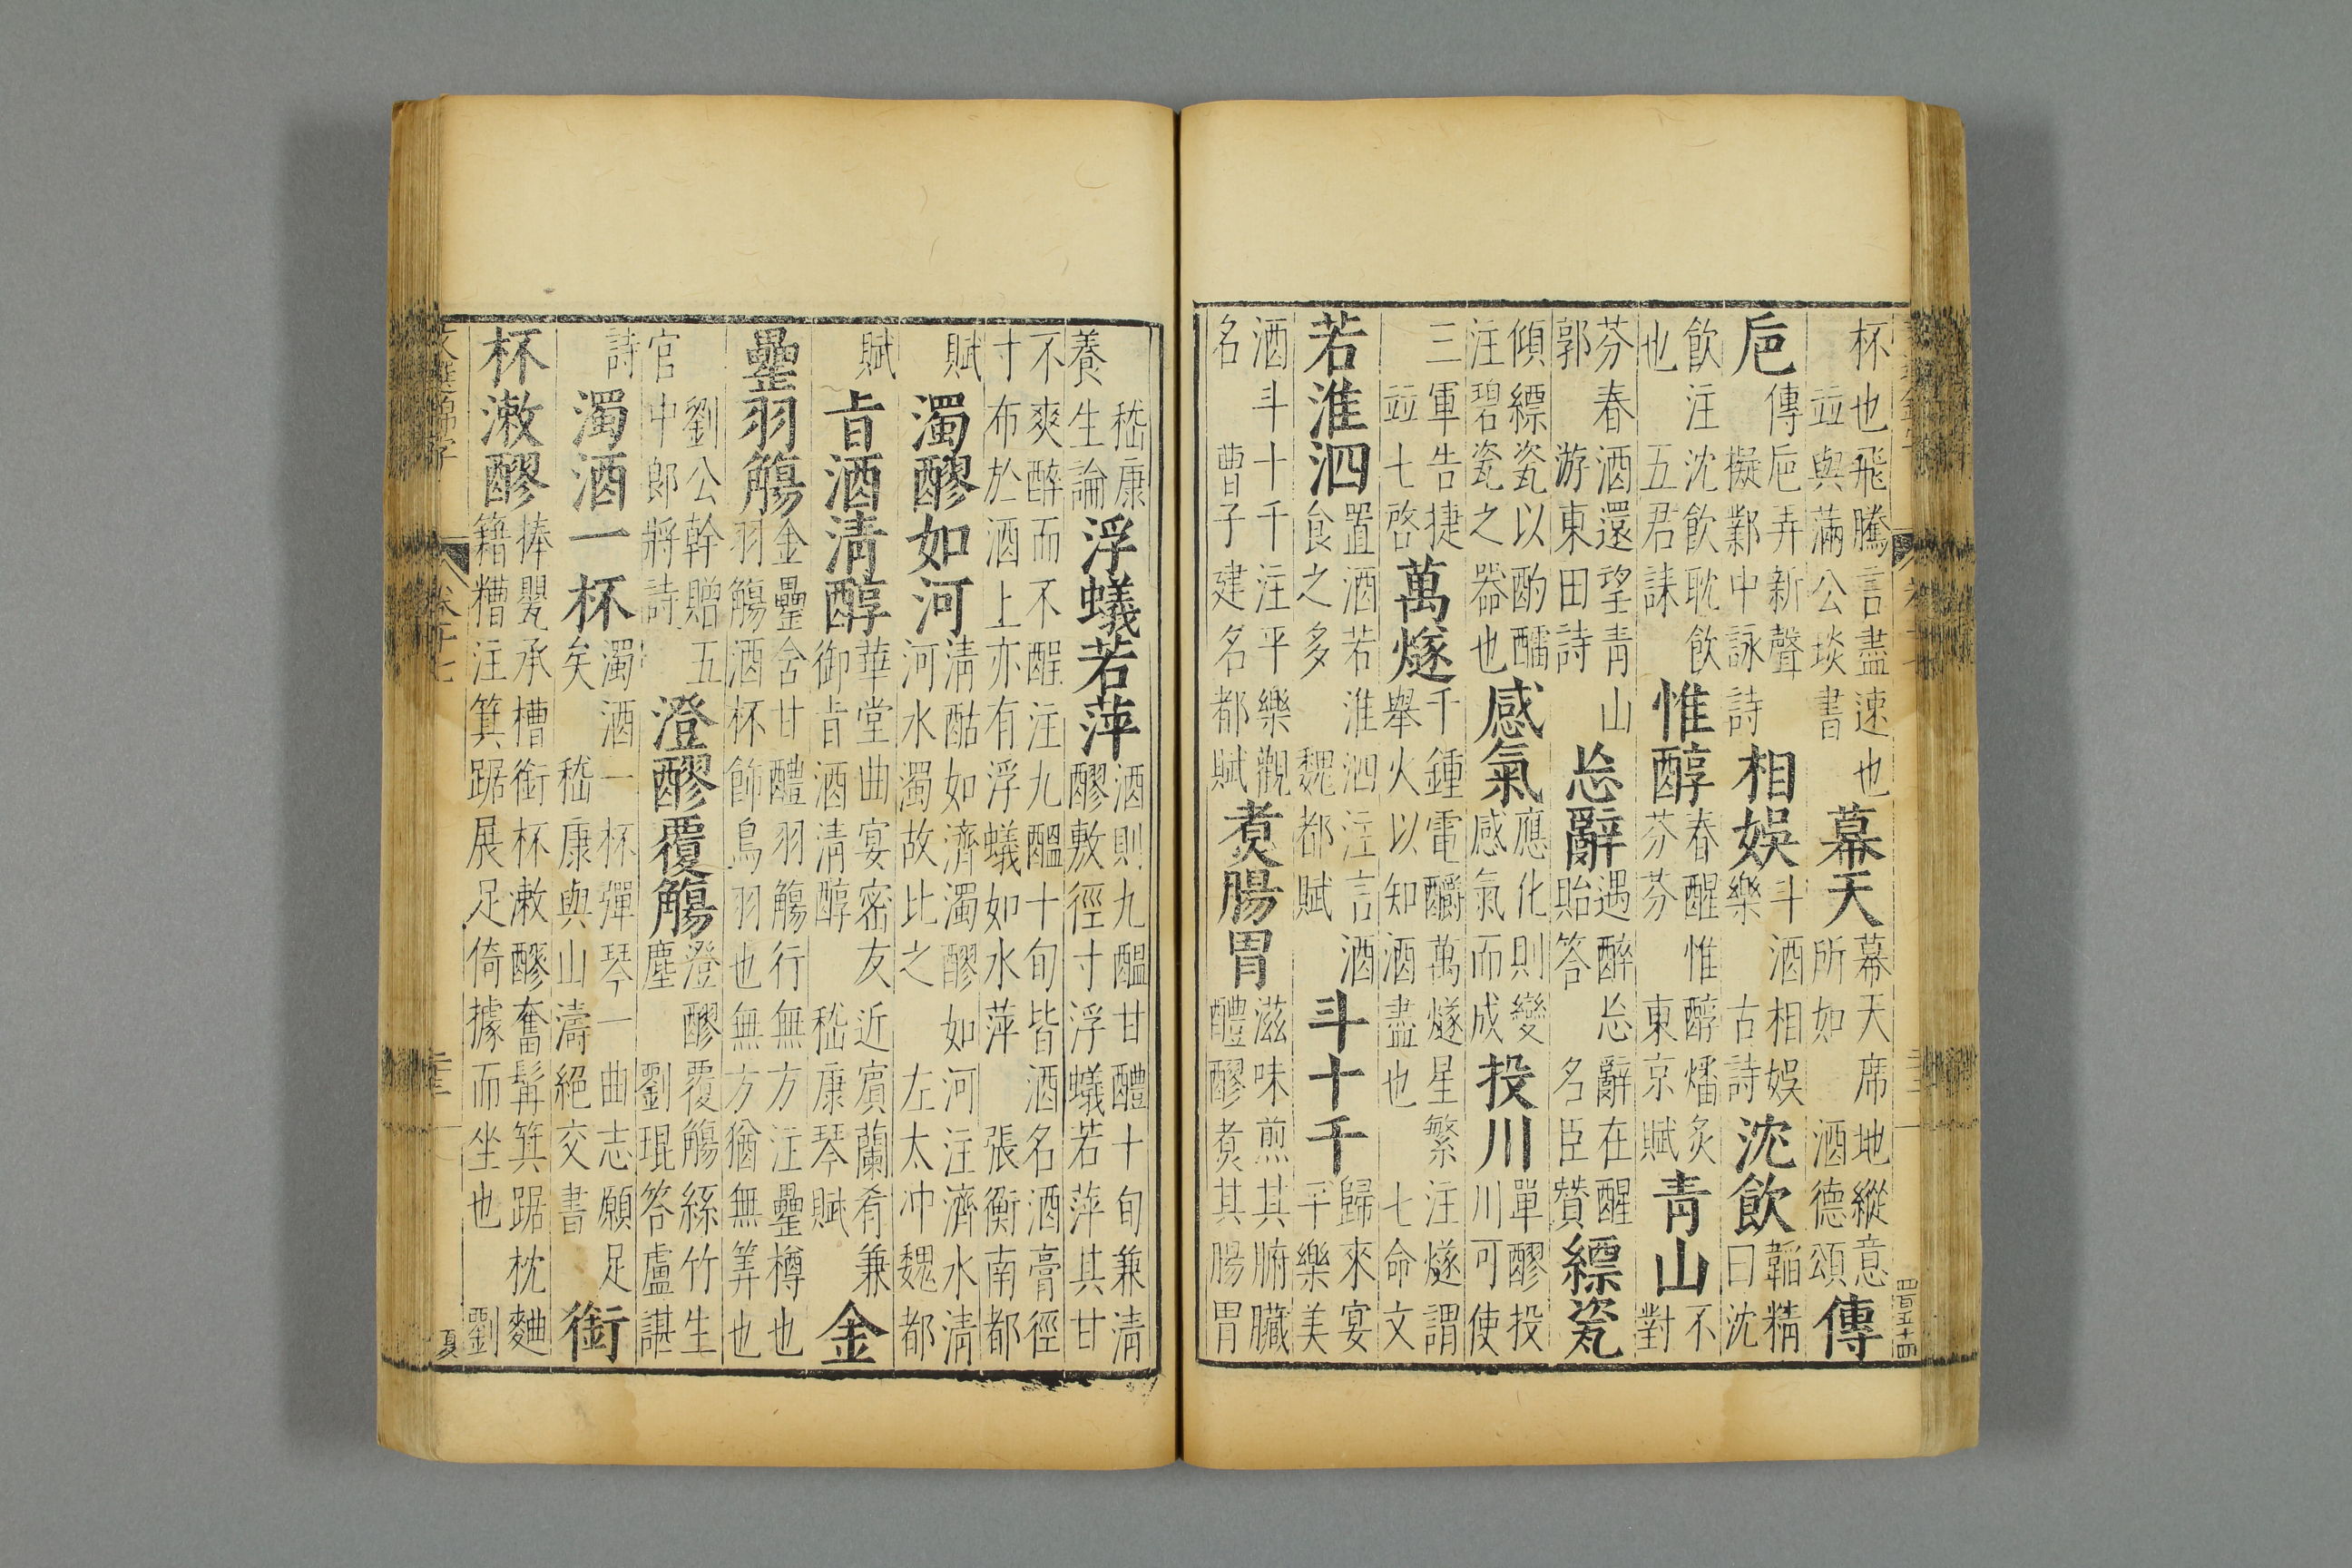 四百五十四
杯也飛騰言盡速也
竝與滿公琰書
幕天
幕天席地縱意
所如 酒德頌
傳
巵
傳巵弄新聲
擬鄴中詠詩
相娛
斗酒相娛
樂 古詩
沈飲
韜精
曰沈
飲注沈飲耽飲
也 五君誄
惟醇
春醒惟醇燔炙
芬芬 東京賦
青山
不
對
芬春酒還望青山
郭 游東田詩
忘辭
遇醉忘辭在醒
貽答 名臣贊
縹瓷
傾縹瓷以酌醽
注碧瓷之器也
感氣
應化則變
感氣而成
投川
單醪投
川可使
三軍告捷
竝七啓
萬燧
千鍾電釂萬燧星繁注燧謂
舉火以知酒盡也 七命文
若淮泗
置酒若淮泗注言酒
食之多 魏都賦
斗十千
歸來宴
平樂美
酒斗十千注平樂觀
名 曹子建名都賦
煑腸胃
滋味煎其腑臟
醴醪煑其腸胃
嵇康
養生論
浮蟻若萍
酒則九醖甘醴十旬兼清
醪敷徑寸浮蟻若萍其甘
不爽醉而不酲注九醖十旬皆酒名酒膏徑
寸布於酒上亦有浮蟻如水萍 張衡南都
賦
濁醪如河
清酤如濟濁醪如河注濟水清
河水濁故比之 左太冲魏都
賦
旨酒清醇
華堂曲宴密友近賓蘭肴兼
御旨酒清醇 嵇康琴賦
金
罍羽觴
金罍含甘醴羽觴行無方注罍樽也
羽觴酒杯飾鳥羽也無方猶無筭也
劉公幹贈五
官中郎將詩
澄醪覆觴
澄醪覆觴絲竹生
塵 劉琨答盧諶
詩
濁酒一杯
濁酒一杯彈琴一曲志願足
矣 嵇康與山濤絕交書
銜
杯漱醪
捧甖承槽銜杯漱醪奮髯箕踞枕麯
籍糟注箕踞展足倚據而坐也 劉
卷十七
夏